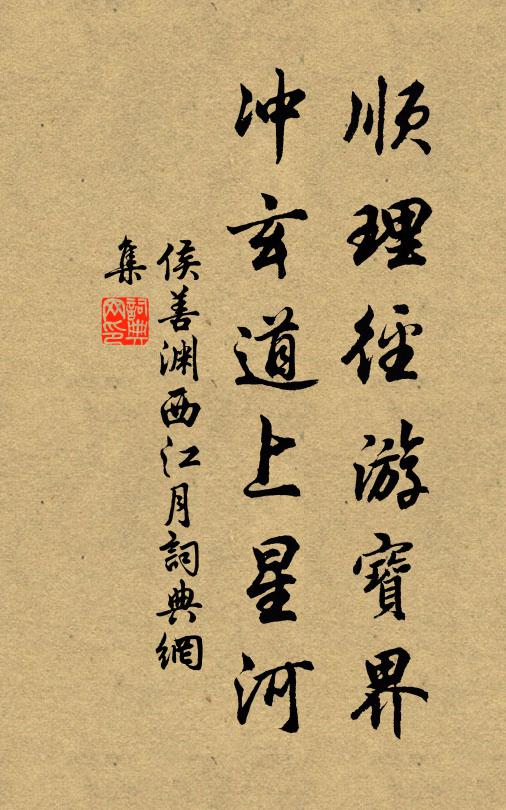 順理徑游寶界
冲玄道上星河
侯善渊西江月詞典網
集
詞典网印